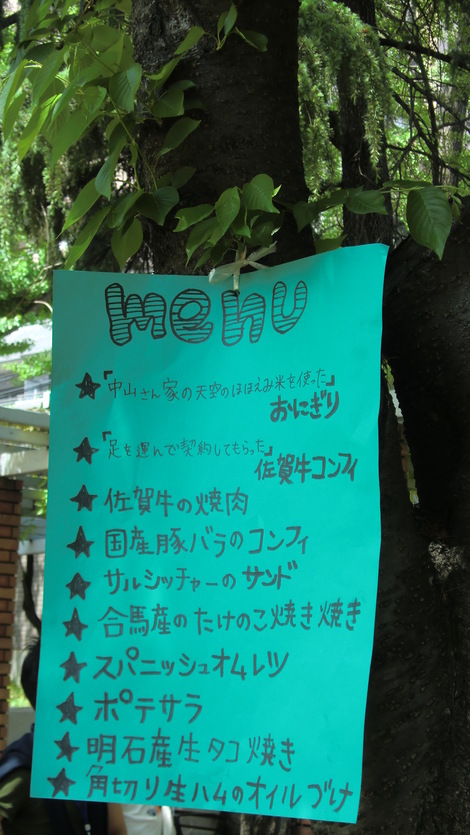 menu
★「中山さん家の天空のほほえみ米を使った」
おにぎり
★「足を運んで契約してもらった」
佐賀牛コンフィ
★佐賀牛の焼肉
★国産豚バラのコンフィ
★サルシッチャーのサンド
★合馬産のたけのこ焼き焼き
★スパニッシュオムレツ
★ポテサラ
★明石産生タコ焼き
★角切り生ハムのオイルづけ